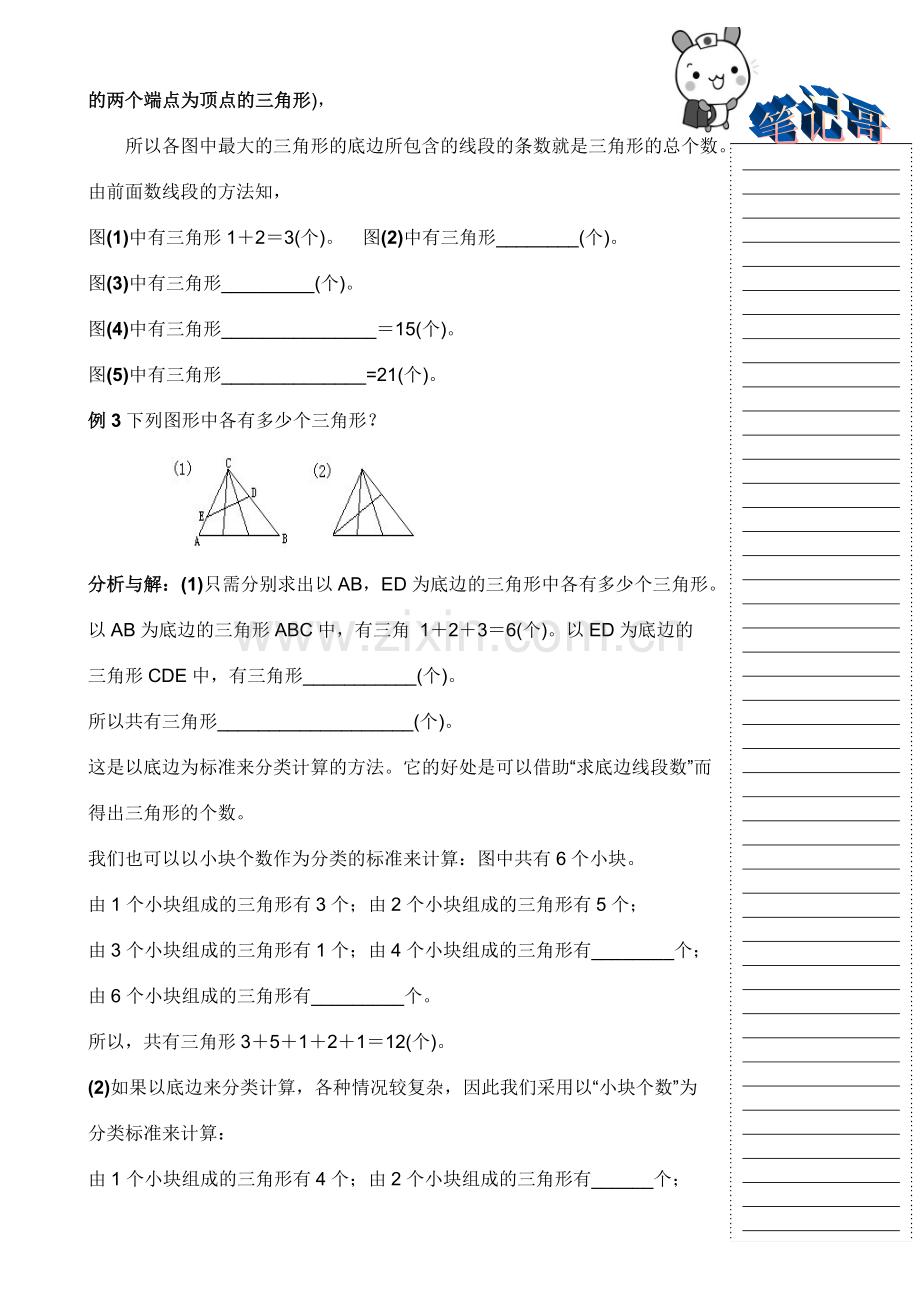 笔记哥
的两个端点为顶点的三角形)，
所以各图中最大的三角形的底边所包含的线段的条数就是三角形的总个数。
由前面数线段的方法知，
图(1)中有三角形1＋2＝3(个)。 图(2)中有三角形________(个)。
图(3)中有三角形_________(个)。
图(4)中有三角形_______________＝15(个)。
图(5)中有三角形______________=21(个)。
例3下列图形中各有多少个三角形？
(1) C D E A B (2)
分析与解：(1)只需分别求出以AB，ED为底边的三角形中各有多少个三角形。
以AB为底边的三角形ABC中，有三角 1＋2＋3＝6(个)。以ED为底边的
三角形CDE中，有三角形___________(个)。
所以共有三角形___________________(个)。
这是以底边为标准来分类计算的方法。它的好处是可以借助“求底边线段数”而
得出三角形的个数。
我们也可以以小块个数作为分类的标准来计算：图中共有6个小块。
由1个小块组成的三角形有3个；由2个小块组成的三角形有5个；
由3个小块组成的三角形有1个；由4个小块组成的三角形有________个；
由6个小块组成的三角形有_________个。
所以，共有三角形3＋5＋1＋2＋1＝12(个)。
(2)如果以底边来分类计算，各种情况较复杂，因此我们采用以“小块个数”为
分类标准来计算：
由1个小块组成的三角形有4个；由2个小块组成的三角形有______个；
www.zixin.com.cn